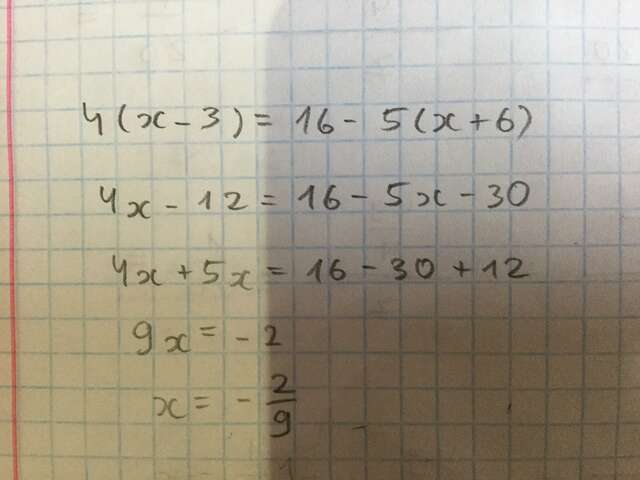 4(x-3) = 16 - 5(x+6)
4x - 12 = 16 - 5x - 30
4x + 5x = 16 - 30 + 12
9x = -2
x = - 2/9